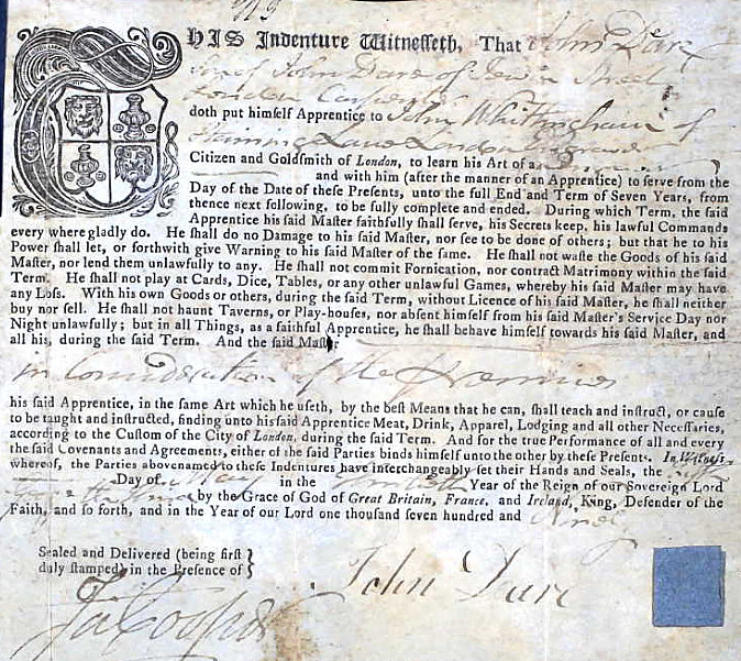 THIS Indenture Witnesseth, That John Dare
Son of John Dare of Street
London Carpenter
doth put himself Apprentice to John Whittingham of
Lane London Engraver
Citizen and Goldsmith of London, to learn his Art of a
and with him (after the manner of an Apprentice) to serve from the
Day of the Date of these Presents, unto the full End and Term of Seven Years, from
thence next following, to be fully complete and ended. During which Term, the said
Apprentice his said Master faithfully shall serve, his Secrets keep, his lawful Commands
every where gladly do. He shall do no Damage to his said Master, nor see to be done of others; but that he to his
Power shall let, or forthwith give Warning to his said Master of the same. He shall not waste the Goods of his said
Master, nor lend them unlawfully to any. He shall not commit Fornication, nor contract Matrimony within the said
Term. He shall not play at Cards, Dice, Tables, or any other unlawful Games, whereby his said Master may have
any Loss. With his own Goods or others, during the said Term, without Licence of his said Master, he shall neither
buy nor sell. He shall not haunt Taverns, or Play-houses, nor absent himself from his said Master's Service Day nor
Night unlawfully; but in all Things, as a faithful Apprentice, he shall behave himself towards his said Master, and
all his, during the said Term. And the said Master
in Consideration of the Premises
his said Apprentice, in the same Art which he useth, by the best Means that he can, shall teach and instruct, or cause
to be taught and instructed, finding unto his said Apprentice Meat, Drink, Apparel, Lodging and all other Necessaries,
according to the Custom of the City of London, during the said Term. And for the true Performance of all and every
the said Covenants and Agreements, either of the said Parties binds himself unto the other by these Presents. In Witness
whereof, the Parties abovenamed to these Indentures have interchangeably set their Hands and Seals, the
Day of May in the Year of the Reign of our Sovereign Lord
by the Grace of God of Great Britain, France, and Ireland, King, Defender of the
Faith, and so forth, and in the Year of our Lord one thousand seven hundred and
Sealed and Delivered (being first
duly stamped) in the Presence of
John Dare